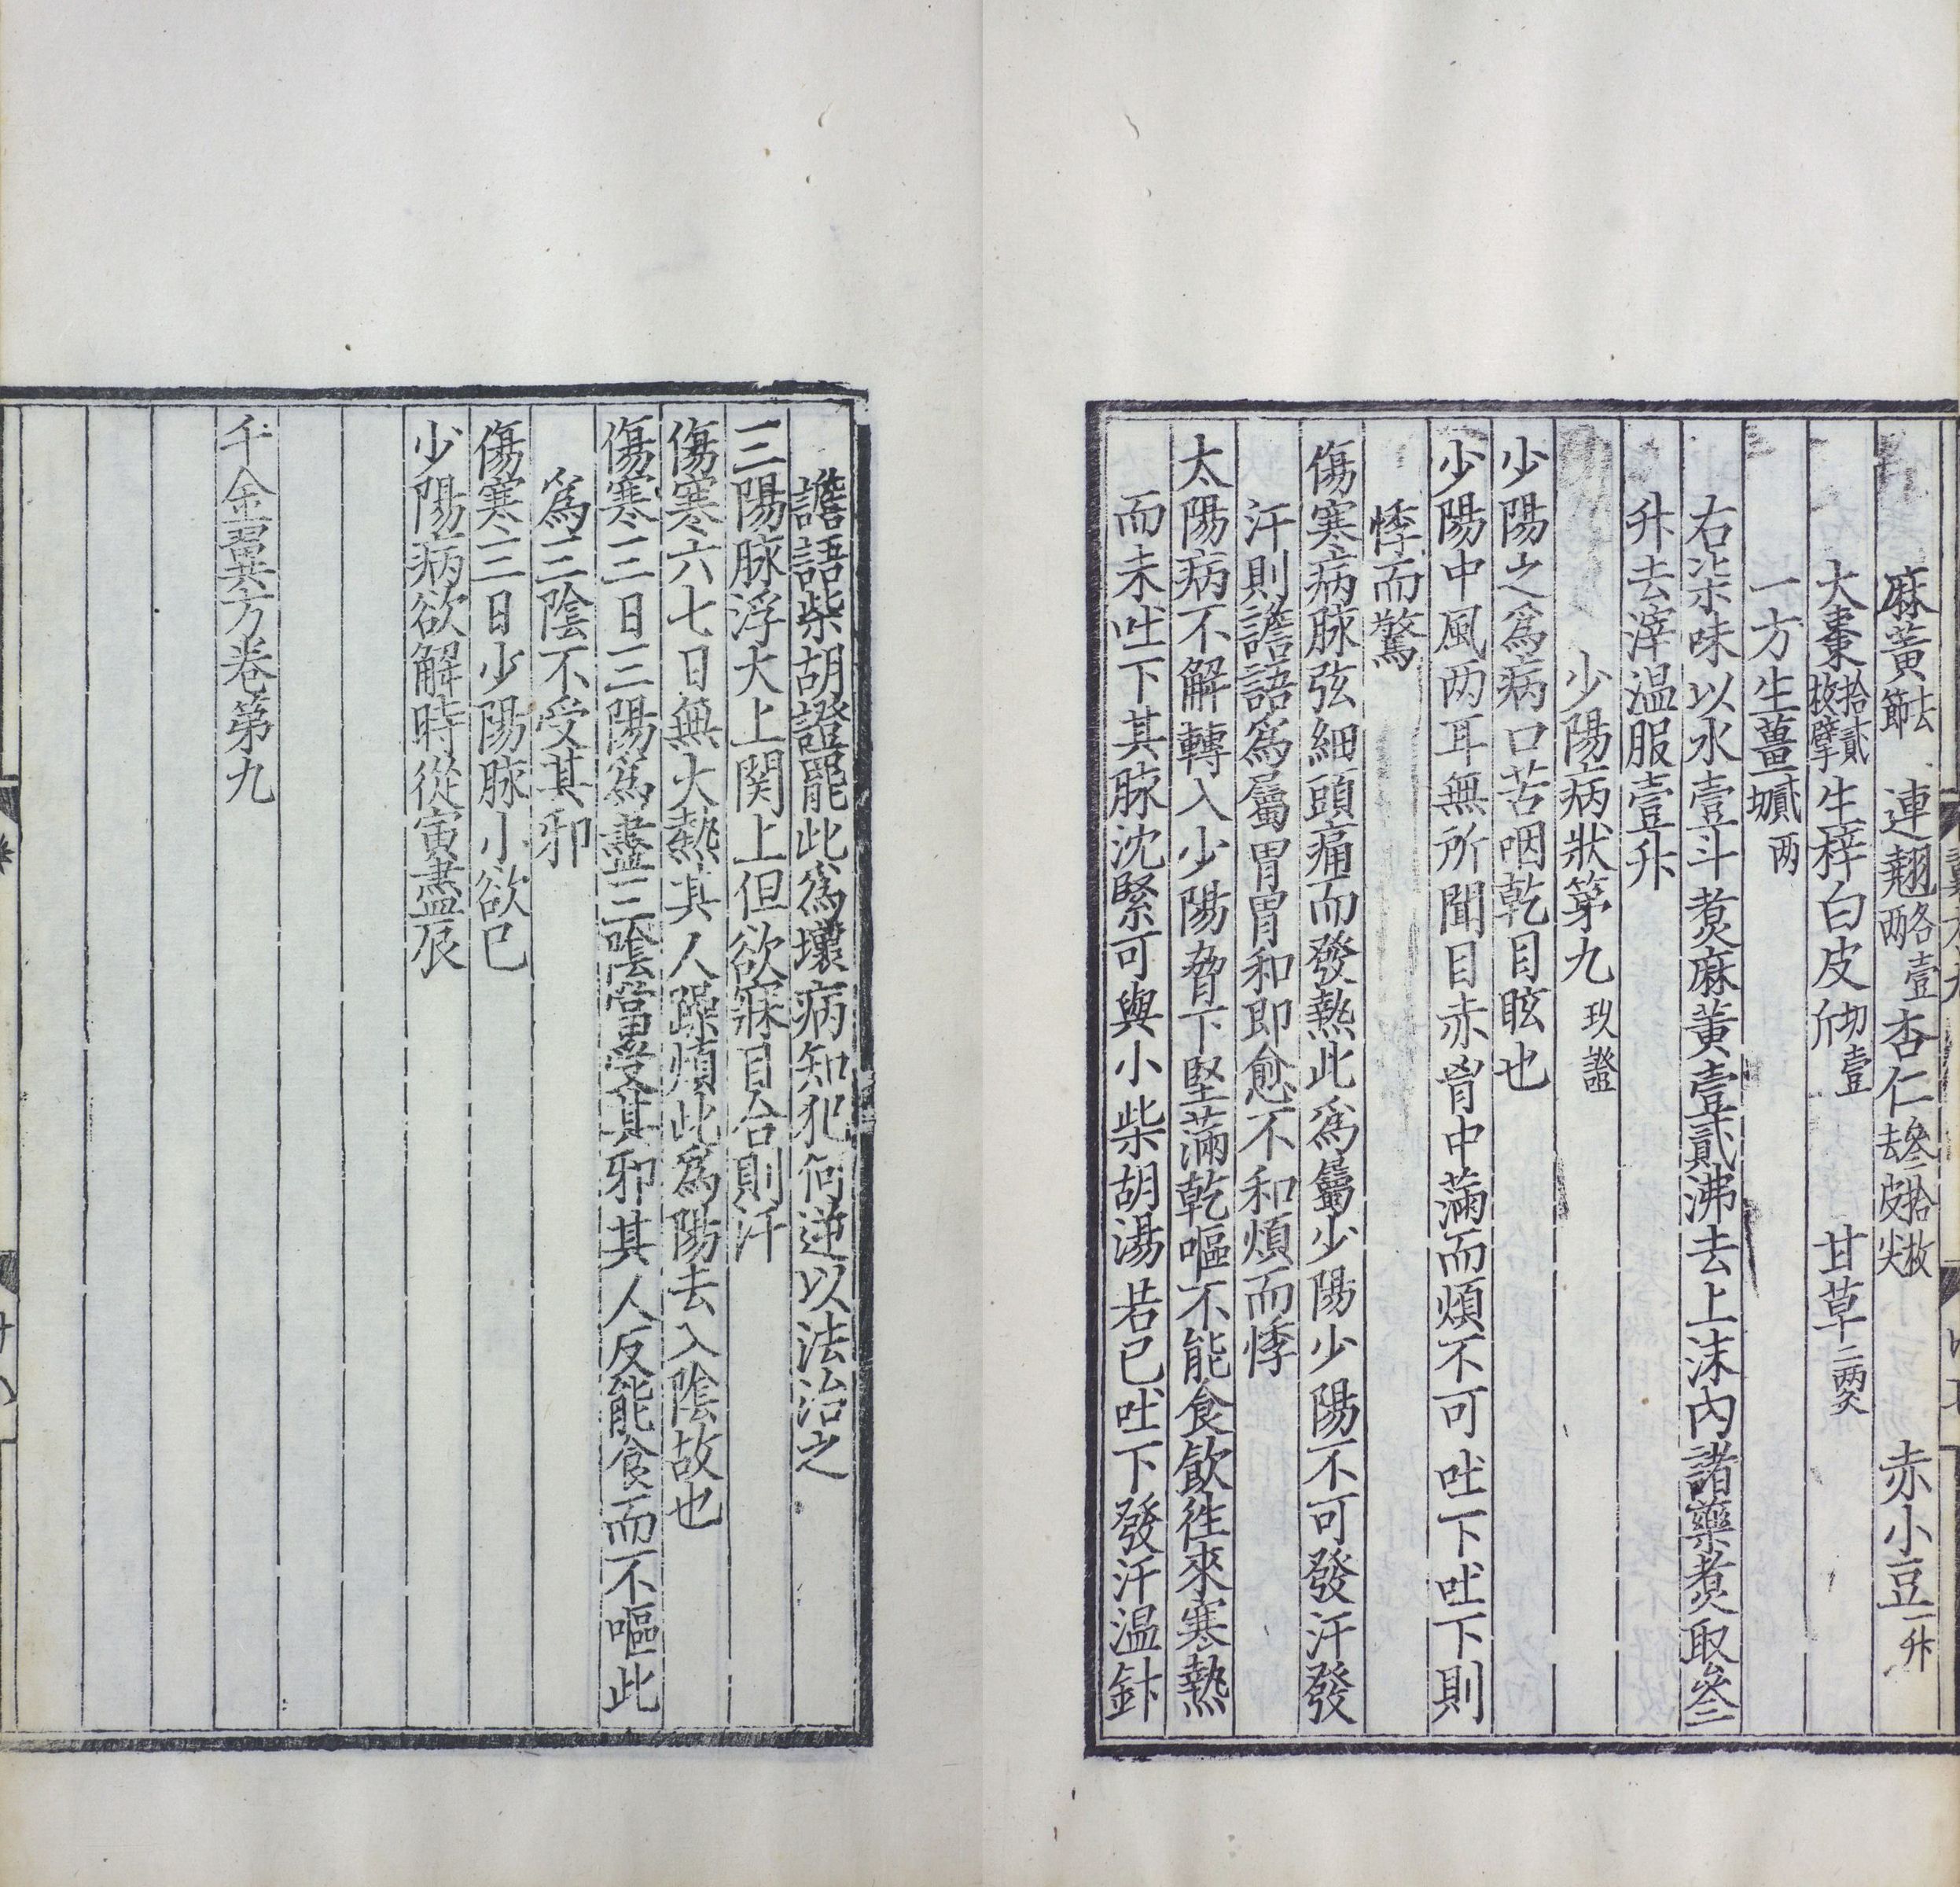 麻黃去節 連翹各壹兩 杏仁叄拾枚去皮尖 赤小豆一升
大棗拾貳枚擘 生梓白皮切壹斤 甘草二兩炙
一方生薑貳兩切
右柒味以水壹斗煑麻黃壹貳沸去上沫內諸藥煑取叄
升去滓温服壹升
少陽病狀第九 玖證
少陽之爲病口苦咽乾目眩也
少陽中風两耳無所聞目赤胷中滿而煩不可吐下吐下則
悸而驚
傷寒病脉弦細頭痛而發熱此爲屬少陽少陽不可發汗發
汗則讝語爲屬胃胃和即愈不和煩而悸
太陽病不解轉入少陽脅下堅滿乾嘔不能食飲徃來寒熱
而未吐下其脉沈緊可與小柴胡湯若已吐下發汗温針
讝語柴胡證罷此爲壞病知犯何逆以法治之
三陽脉浮大上関上但欲寐目合則汗
傷寒六七日無大熱其人躁煩此爲陽去入陰故也
傷寒三日三陽爲盡三陰當受其邪其人反能食而不嘔此
爲三陰不受其邪
傷寒三日少陽脉小欲已
少陽病欲解時從寅盡辰
千金翼方卷第九